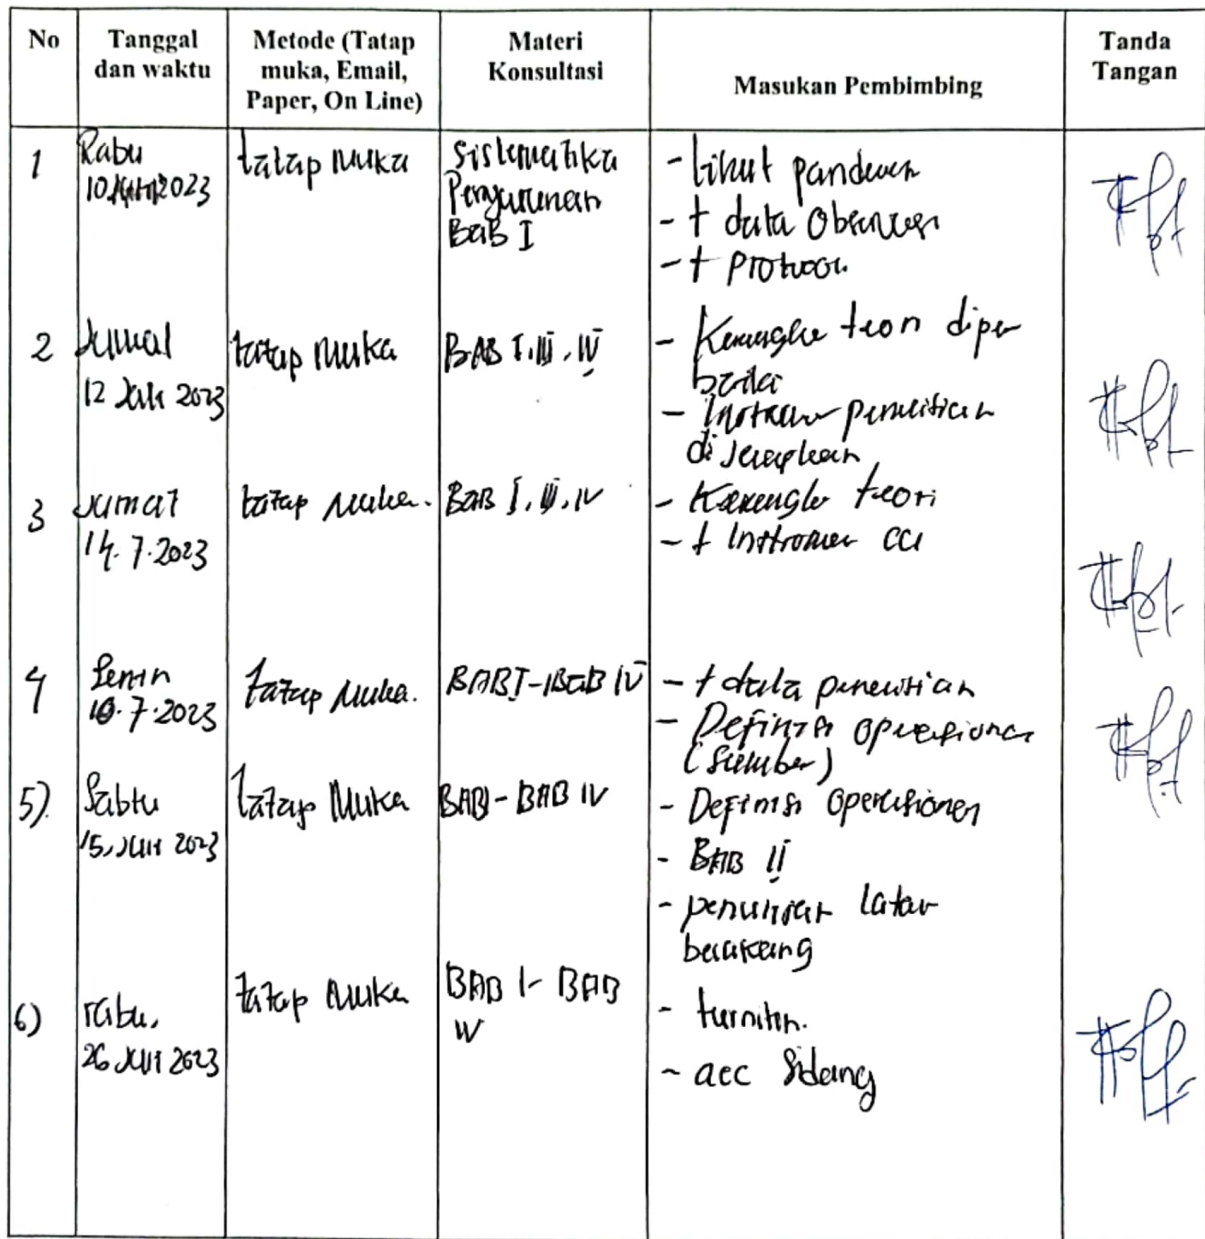 No
Tanggal
dan waktu
Metode (Tatap
muka, Email,
Paper, On Line)
Materi
Konsultasi
Masukan Pembimbing
Tanda
Tangan
1
Rabu
10 2023
tatap muka
Sistematika
Penyusunan
BaB I
- Lihat panduan
- + data Observasi
- + Protocol
2
Jumat
12 Juli 2023
tatap muka
BAB I, III, IV
- Kerangka teori diper
baiki
- Instrumen penelitian
di siapkan
3
Jumat
14.7.2023
tatap muka.
BaB I, III, IV
- Kerangka teori
- + Instrumen
4
Senin
10.7.2023
tatap muka.
BAB I - BaB IV
- + data penelitian
- Definisi operasional
(Sumber)
5)
Sabtu
15, Juli 2023
tatap Muka
BAB I - BAB IV
- Definisi Operasional
- BAB II
- penulisan latar
belakang
6)
rabu,
26 Juli 2023
tatap Muka
BAB I - BAB
IV
- turnitin.
- acc Sidang